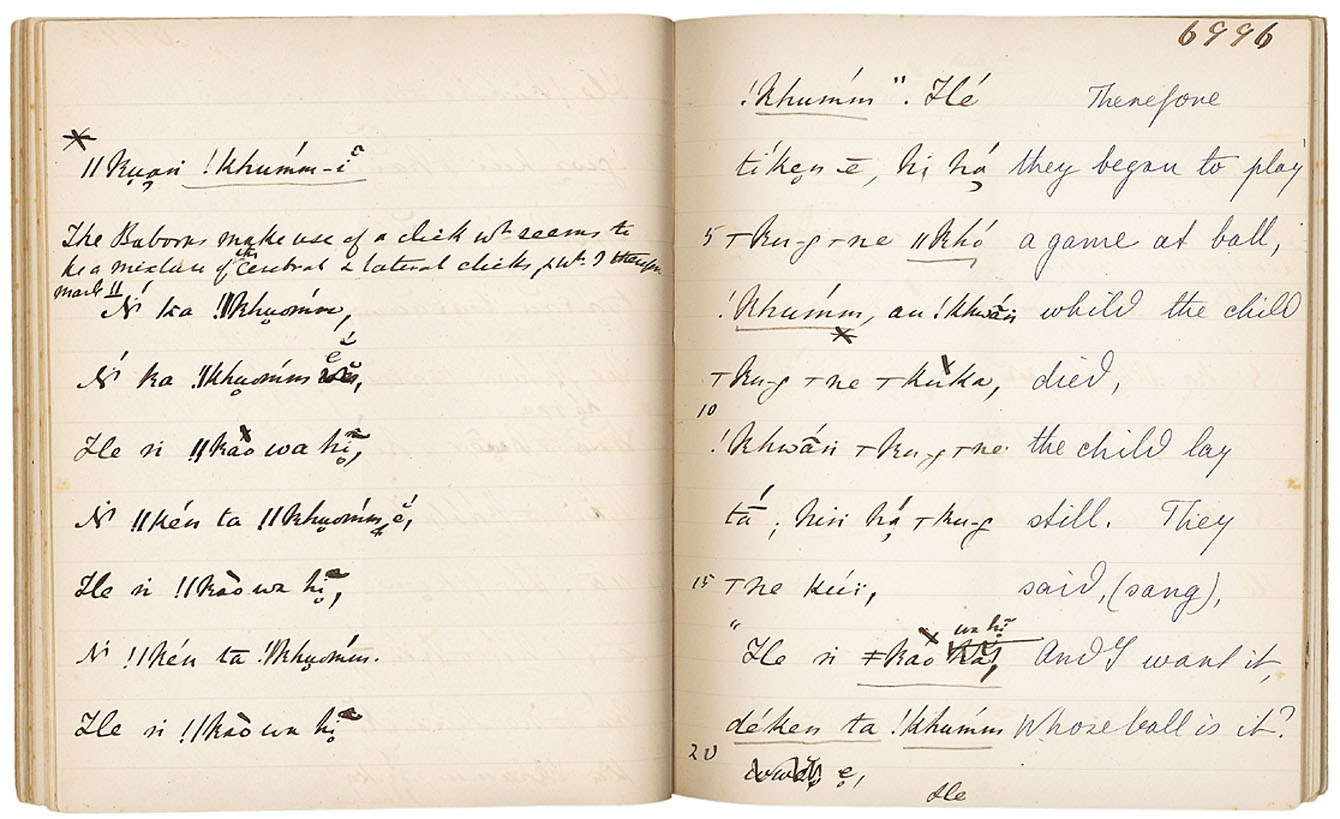 *
||kuan !khumm-i
The Baboons make use of a click wh seems to
be a mixture of the cerebral & lateral clicks, & wh. I therefore
mark !!
Ń ka !!khuomm,
Ń ka !!khuomm
He ń !!kào wa hĩ,
Ń !!kén ta !!khuomm é,
He ń !!kào wa hĩ,
Ń !!kén ta !!khuomm.
He ń !!kào wa hĩ
6996
!khumḿ". Hé Therefore
tíken ē, hi há they began to play
5 ⊤ku-g ⊤ne ||khó a game at ball,
!khumḿ, au !khwãń whild the child
⊤ku-g ⊤ne ⊤kùka, died,
10
!khwãń ⊤ku-g ⊤ne the child lay
tā́; hiń há ⊤ku-g still. They
15 ⊤ne kúï, said, (sang),
wa hĩ
"He ń ≠kào And I want it,
déken ta !khumḿ Whose ball is it?
20
e,
He